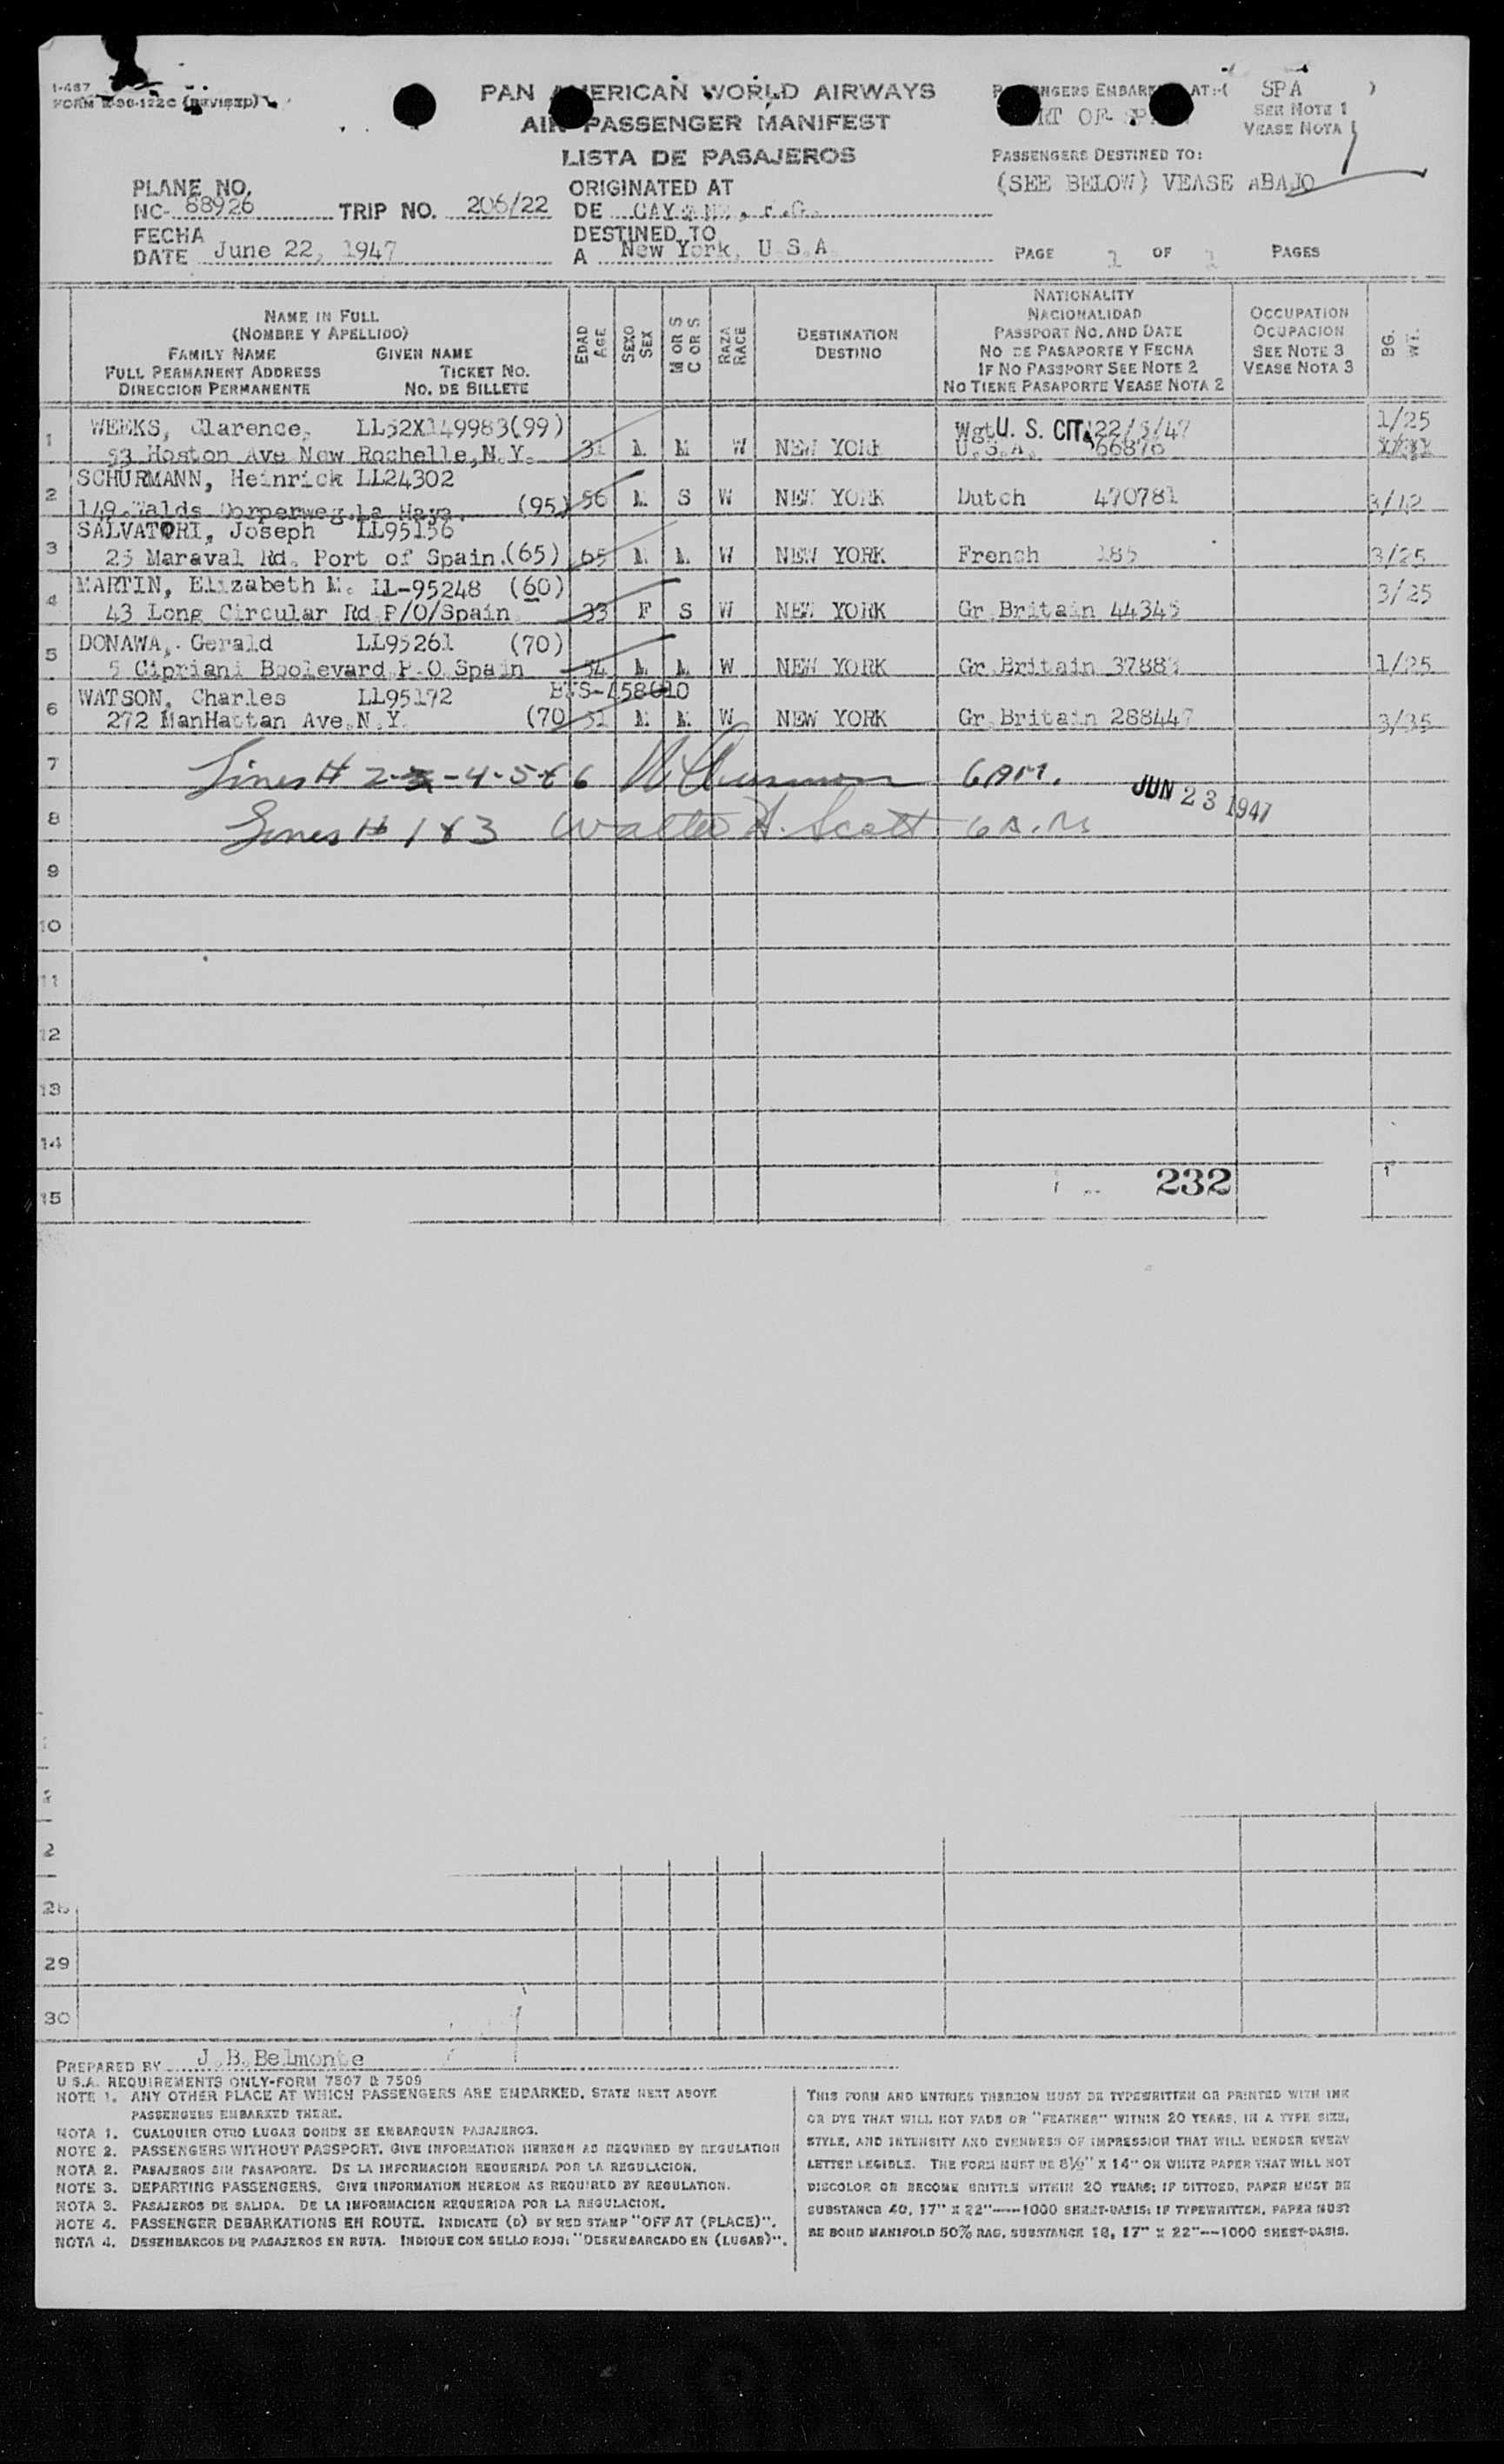 I-487
FORM R-96-122C (REVISED)
PAN AMERICAN WORLD AIRWAYS
AIR PASSENGER MANIFEST
LISTA DE PASAJEROS
PASSENGERS EMBARKED AT:-( SPA )
SEE NOTE 1
VEASE NOTA 1
PORT OF SPAIN
PASSENGERS DESTINED TO:
(SEE BELOW) VEASE ABAJO
PLANE NO.
NC- 88926 TRIP NO. 206/22
ORIGINATED AT
DE CAYENNE, F.G.
FECHA
DATE June 22, 1947
DESTINED TO
A New York, U.S.A.
PAGE 1 OF 1 PAGES
NAME IN FULL
(NOMBRE Y APELLIDO)
FAMILY NAME GIVEN NAME
FULL PERMANENT ADDRESS TICKET NO.
DIRECCION PERMANENTE NO. DE BILLETE
EDAD
AGE
SEXO
SEX
M OR S
C OR S
RAZA
RACE
DESTINATION
DESTINO
NATIONALITY
NACIONALIDAD
PASSPORT NO. AND DATE
NO DE PASAPORTE Y FECHA
IF NO PASSPORT SEE NOTE 2
NO TIENE PASAPORTE VEASE NOTA 2
OCCUPATION
OCUPACION
SEE NOTE 3
VEASE NOTA 3
BG.
WT.
1 WEEKS, Clarence, LL52X149983(99) Wgt U. S. CIT. 22/5/47 1/25
53 Hoston Ave New Rochelle, N.Y. 31 M M W NEW YORK U.S.A. 66876
2 SCHURMANN, Heinrick LL24302
149 Walds Dorperweg.La Haya. (95) 56 M S W NEW YORK Dutch 470781 3/42
3 SALVATORI, Joseph LL95156
25 Maraval Rd. Port of Spain.(65) 65 M M W NEW YORK French 185 3/25
4 MARTIN, Elizabeth M. LL-95248 (60) 3/25
43 Long Circular Rd P/O/Spain. 33 F S W NEW YORK Gr.Britain 44345
5 DONAWA, Gerald LL95261 (70)
5 Cipriani Boolevard P.O.Spain 54 M M W NEW YORK Gr.Britain 1/25
6 WATSON, Charles LL95172
272 ManHattan Ave.N.Y. (70) 51 M M W NEW YORK Gr.Britain 288447 3/35
7 Lines # 2-4-5+6 6 AM.
JUN 23 1947
8 Lines # 1 & 3 Walter H. Scott 6 A.M
9
10
11
12
13
14
15 232
2
28
29
30
PREPARED BY J.B.Belmonte
U.S.A. REQUIREMENTS ONLY-FORM 7507 & 7509
NOTE 1. ANY OTHER PLACE AT WHICH PASSENGERS ARE EMBARKED, STATE NEXT ABOVE
PASSENGERS EMBARKED THERE.
NOTA 1. CUALQUIER OTRO LUGAR DONDE SE EMBARQUEN PASAJEROS.
NOTE 2. PASSENGERS WITHOUT PASSPORT. GIVE INFORMATION HEREON AS REQUIRED BY REGULATION
NOTA 2. PASAJEROS SIN PASAPORTE. DE LA INFORMACION REQUERIDA POR LA REGULACION.
NOTE 3. DEPARTING PASSENGERS. GIVE INFORMATION HEREON AS REQUIRED BY REGULATION.
NOTA 3. PASAJEROS DE SALIDA. DE LA INFORMACION REQUERIDA POR LA REGULACION.
NOTE 4. PASSENGER DEBARKATIONS EN ROUTE. INDICATE (D) BY RED STAMP "OFF AT (PLACE)".
NOTA 4. DESEMBARCOS DE PASAJEROS EN RUTA. INDIQUE CON SELLO ROJO: "DESEMBARCADO EN (LUGAR)".
THIS FORM AND ENTRIES THEREON MUST BE TYPEWRITTEN OR PRINTED WITH INK
OR DYE THAT WILL NOT FADE OR "FEATHER" WITHIN 20 YEARS, IN A TYPE SIZE,
STYLE, AND INTENSITY AND EVENNESS OF IMPRESSION THAT WILL RENDER EVERY
LETTER LEGIBLE. THE FORM MUST BE 8½" X 14" ON WHITE PAPER THAT WILL NOT
DISCOLOR OR BECOME BRITTLE WITHIN 20 YEARS; IF DITTOED, PAPER MUST BE
SUBSTANCE 40, 17" X 22"—1000 SHEET-BASIS; IF TYPEWRITTEN, PAPER MUST
BE BOND MANIFOLD 50% RAG, SUBSTANCE 18, 17" X 22"—1000 SHEET-BASIS.